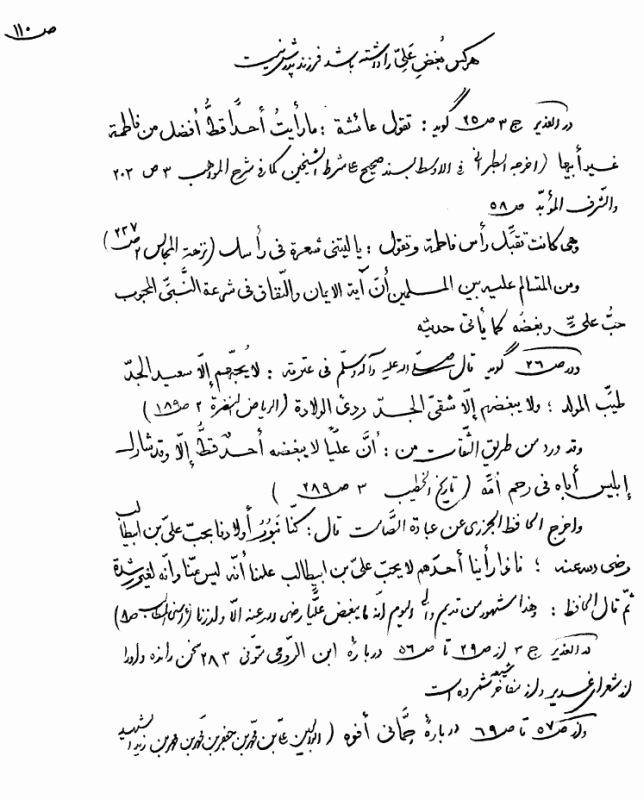 ص ۱۱۰
هرکس بُغضِ عَلِیّ را داشته باشد فرزند پدرش نیست
در الغدیر ج ۳ ص ۲۵ گوید : تقول عائشة : ما رأیتُ أحداً قطُّ أفضل من فاطمة
غیر أبیها (أخرجه الطبرانی فی الاوسط بسند صحیح علی شرط الشیخین کما فی شرح المواهب ۳ ص ۲۰۲
والشّرف المؤبّد ص ۵۸
وهی کانت تقبّل رأس فاطمة وتقول : یا لیتنی شعرة فی رأسک (نزهة المجالس ۲ ص ۲۲۷)
ومن المتسالم علیه بین المسلمین أنّ آیة الایمان والنّفاق فی شرعة النَّبیّ المحبوب
حبُّ علیٍّ وبغضُه کما یأتی حدیثه
ودر ص ۲۶ گوید قال صلّی الله علیه وآله وسلّم فی عترته : لا یُحبّهم إلّا سعید الجدّ
طیّب المولد ؛ ولا یبغضهم إلّا شقیّ الجدّ ردیّ الولادة (الریاض النضرة ۲ ص ۱۸۹)
وقد ورد من طریق الثّقات من : أنّ علیّاً لا یبغضه أحدٌ قطُّ إلّا وقد شارک
إبلیس أباه فی رحم أمّه (تاریخ الخطیب ۳ ص ۲۸۹)
واخرج الحافظ الجزری عن عبادة الصّامت قال : کنّا نَبُورُ أولادنا بحبّ علیّ بن ابیطالب
رضی الله عنه ؛ فاذا رأینا أحدَهم لا یحبّ علیّ بن ابیطالب علمنا أنّه لیس منّا وانّه لغیر رشدة
ثمّ قال الحافظ : وهذا مشهور من قدیم والی الیوم انّه ما یبغض علیّاً رضی الله عنه الّا ولد زنا (أسنی المطالب ص ۸)
در الغدیر ج ۳ از ص ۲۹ تا ص ۵۶ دربارۀ ابن الرّومی متوفی ۲۸۳ سخن رانده و او را
از شعرای غدیر و از مفاخر شیعه شمرده است
و از ص ۵۷ تا ص ۶۹ دربارۀ حِمّانی أفوه (ابوالحسین علی بن محمد بن جعفر بن محمد بن محمد بن زید الشهید